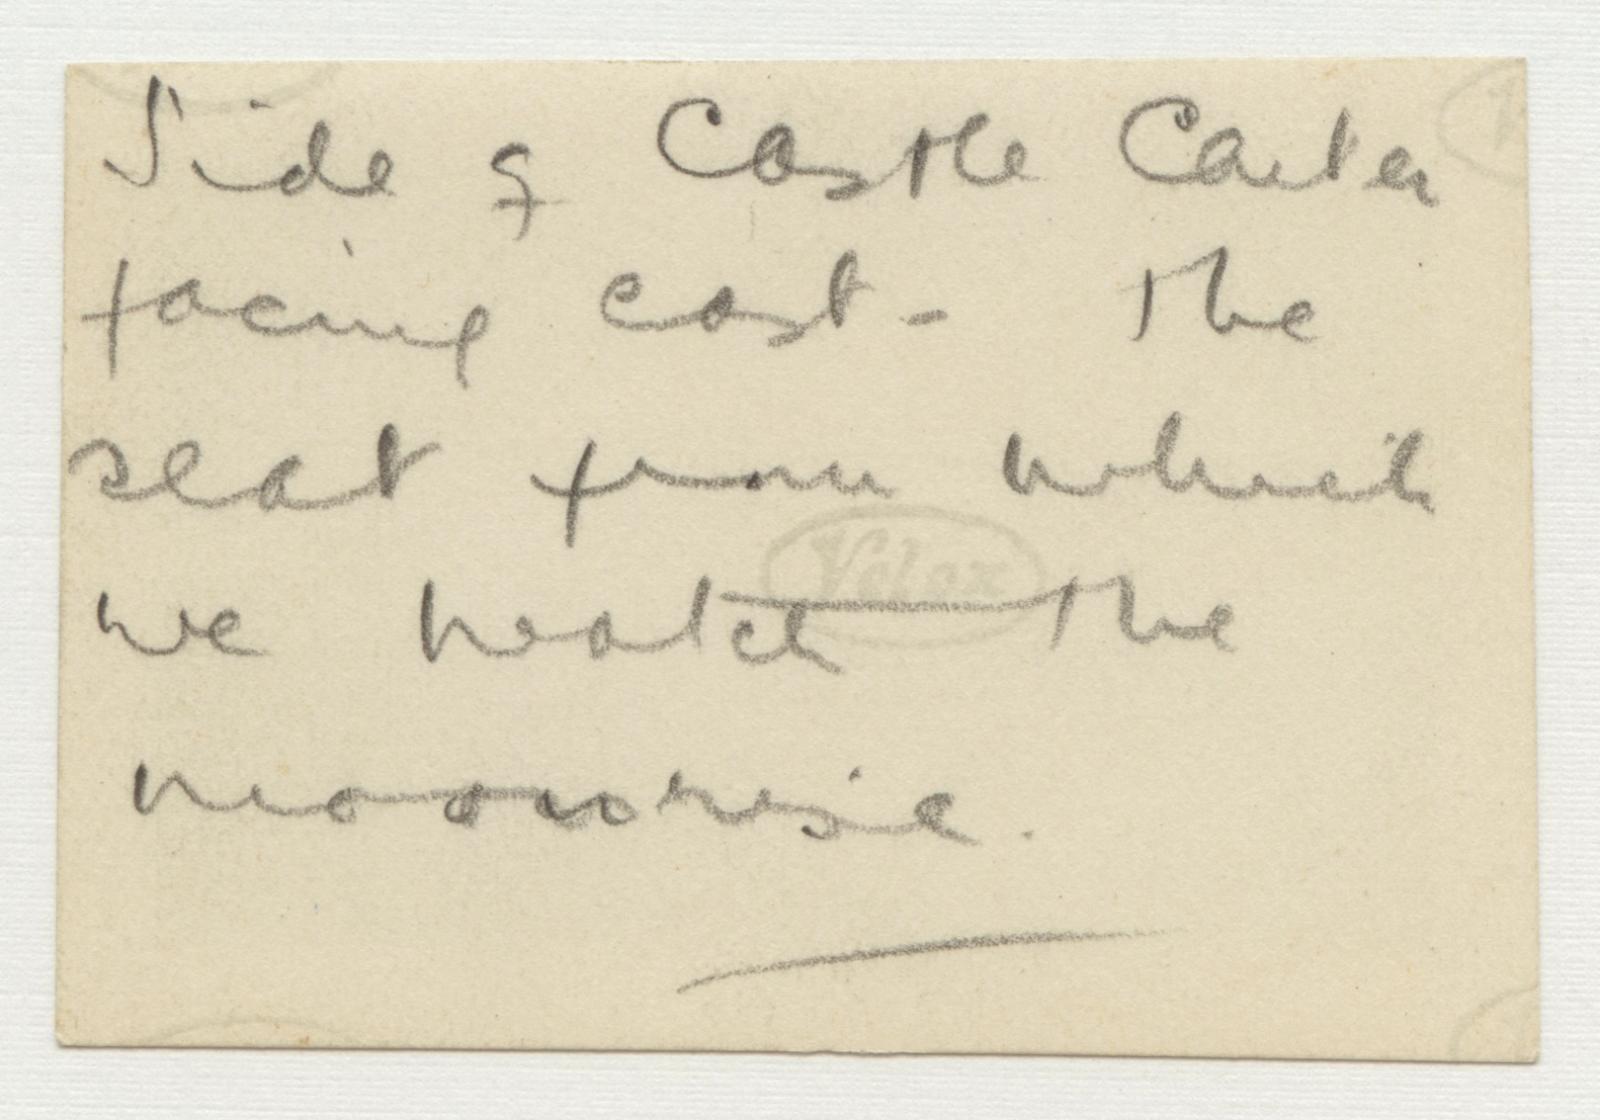 Side of Castle Carter
facing east - the
seat from which
we watch the
moonrise.
Velox